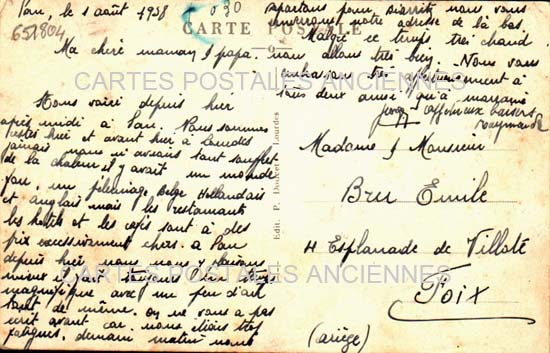 Pau, le 1 août 1938
030
651804
CARTE POSTALE
Ma chère maman & papa.
Nous voici depuis hier
après midi à Pau. Nous sommes
restés hier et avant hier à Lourdes
jamais nous n'avions tant souffert
de la chaleur il y avait un monde
fou, un pélerinage Belge Hollandais
et anglais mais les restaurants
les hotels et les cafés sont à des
prix excessivement chers. a Pau
depuis hier nous nous y plaisons
mieux il fait toujours un temps
magnifique avec un peu d'air
tout de même. On ne vous a pas
écrit avant car nous étions très
fatigués, demain matin nous
partons pour Biarritz nous vous
enverrons notre adresse de là bas.
Malgré ce temps très chaud
nous allons très bien. Nous vous
embrassons très affectueusement à
tous deux ainsi qu'à marraine
Affectueux baisers
Raymonde
Edit. P. Doucet, Lourdes
Madame & Monsieur
Bru Emile
11 Esplanade de Villote
Foix
(ariège)
CARTES POSTALES ANCIENNES
CARTES POSTALES ANCIENNES